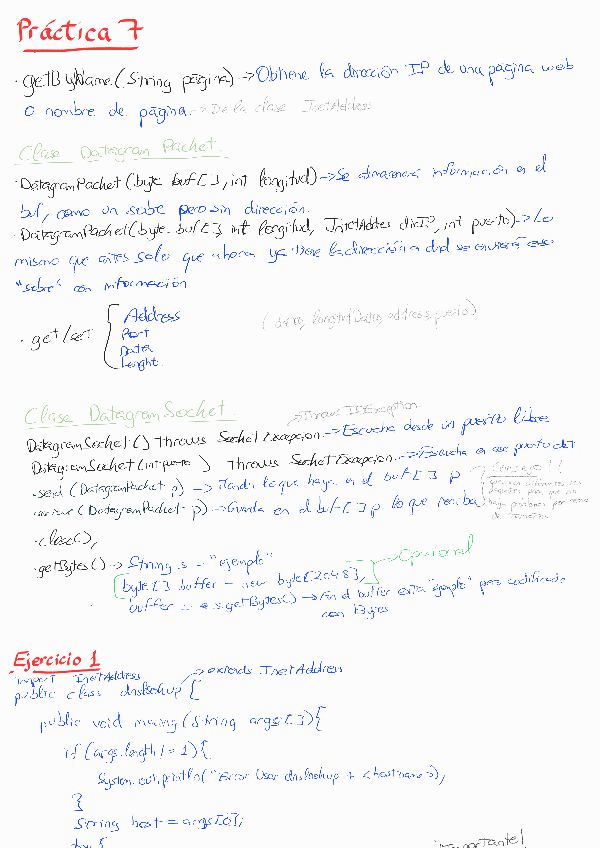 Práctica 7
· getByName(String página) -> Obtiene la dirección IP de una página web
o nombre de página. -> De la clase InetAddress
Clase Datagram Packet.
· DatagramPacket (byte buf[], int longitud) -> Se almacenará información en el
buf, como un sobre pero sin dirección.
· DatagramPacket(byte buf[], int longitud, InetAddres dirIP, int puerto) -> Lo
mismo que antes solo que ahora ya tiene la dirección a cual se enviará ese
"sobre" con información
· get/set { Address
Port
Data
Lenght.
(datos, longitud Datos, address, puerto)
Clase DatagramSocket.
-> Throws IOException
DatagramSocket() throws Socket Excepcion. -> Escucha desde un puerto libre
DatagramSocket (int puerto) throws Socket Excepcion. -> Escucha en ese puerto
· send (DatagramPacket p) -> Manda lo que haya en el buf[] p
· receive (DatagramPacket p) -> Guarda en el buf[] p lo que reciba
Consejo!!
· close();
· getBytes() -> String s = "ejemplo"
byte[] buffer = new byte[2048];
-> Opcional
buffer = s.getBytes() -> En el buffer esta "ejemplo" pero codificado
con Bytes
Ejercicio 1
import InetAddress
-> extends InetAddress
public class dnslookup {
public void maing (String args[]){
if (args.length != 1){
System.out.println("Error User dnslookup + <hostname>);
}
String host = args[0];
try {
importante!